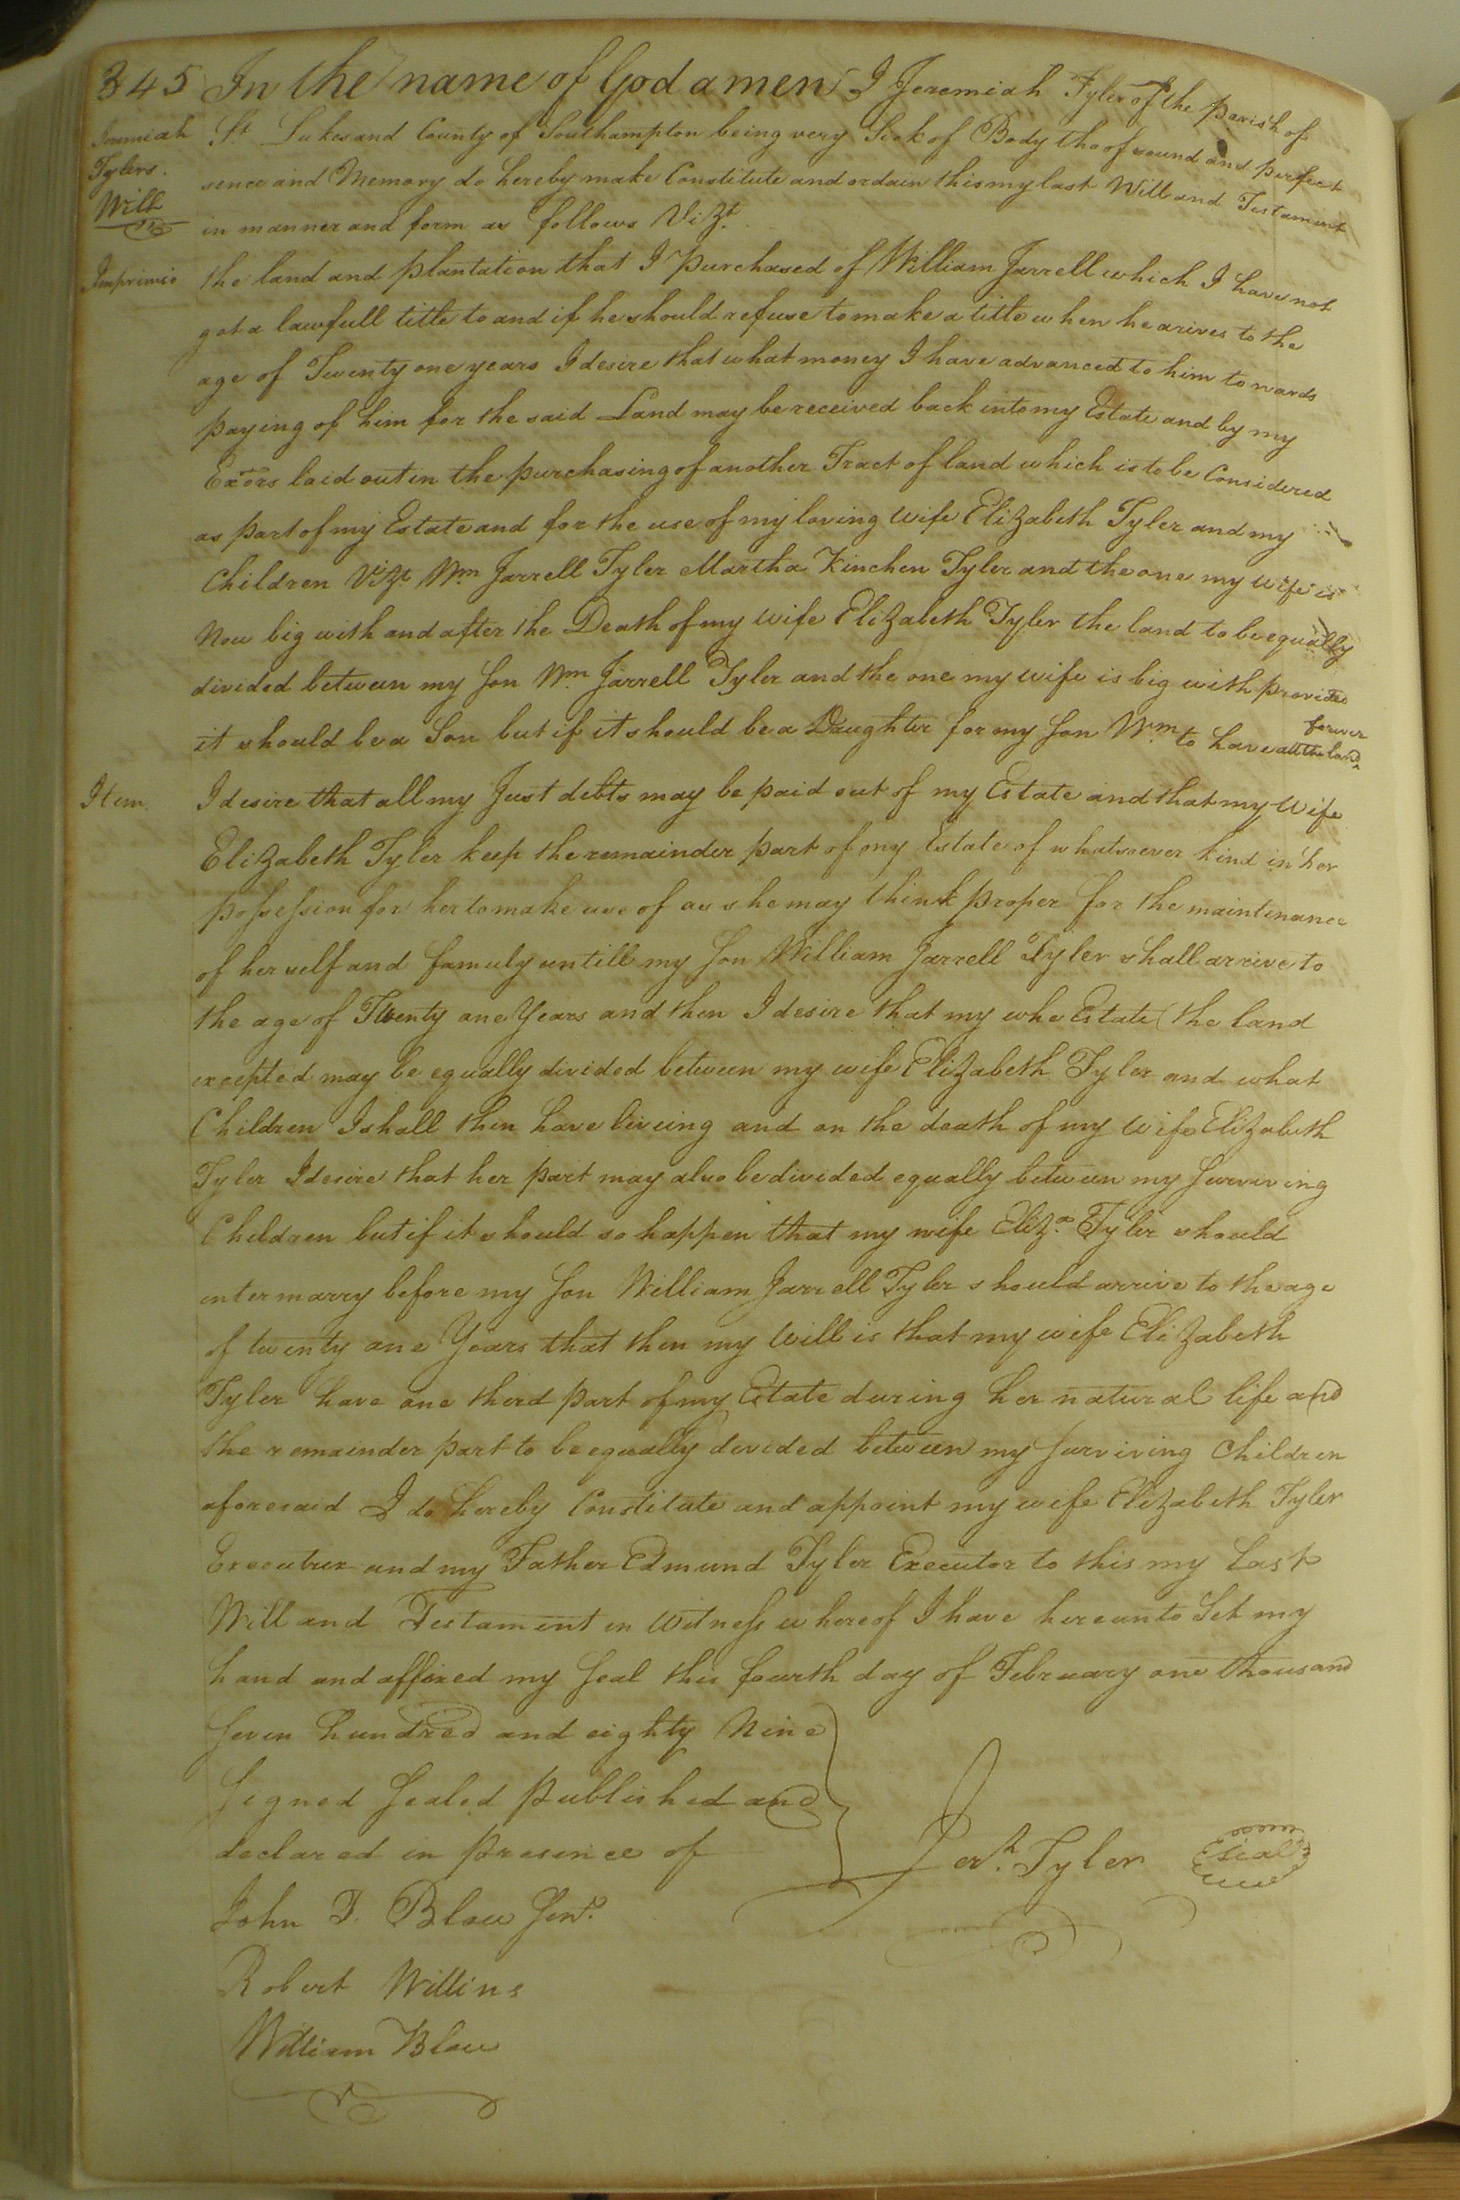 345 In the name of God amen I Jeremiah Tyler of the parish of
Jeremiah St. Lukes and County of Southampton being very Sick of Body tho of sound and perfect
Tylers. sence and Memory do hereby make Constitute and ordain this my last Will and Testament
Will in manner and form as follows Vizt.
Imprimis the land and plantation that I purchased of William Jarrell which I have not
got a lawfull title to and if he should refuse to make a title when he arives to the
age of Twenty one years I desire that what money I have advanced to him towards
paying of him for the said Land may be received back into my Estate and by my
Exors laid out in the purchasing of another Tract of land which is to be Considered
as part of my Estate and for the use of my loving wife Elizabeth Tyler and my
Children Vizt Wm Jarrell Tyler Martha Kinchen Tyler and the one my wife is
Now big with and after the Death of my wife Elizabeth Tyler the land to be equally
divided between my Son Wm. Jarrell Tyler and the one my wife is big with provided
it should be a Son but if it should be a Daughter for my Son Wm. to have all the land forever
Item. I desire that all my Just debts may be paid out of my Estate and that my wife
Elizabeth Tyler keep the remainder part of my Estate of whatsoever kind in her
possession for her to make use of as she may think proper for the maintenance
of herself and famuly untill my Son William Jarrell Tyler shall arrive to
the age of Twenty one Years and then I desire that my whe Estate (the land
excepted may be equally divided between my wife Elizabeth Tyler and what
Children I shall then have living and on the death of my wife Elizabeth
Tyler I desire that her part may also be divided equally between my Surviving
Children but if it should so happen that my wife Eliza. Tyler should
intermarry before my Son William Jarrell Tyler should arrive to the age
of twenty one Years that then my Will is that my wife Elizabeth
Tyler have one third part of my Estate during her natural life and
the remainder part to be equally divided between my Surviving Children
aforesaid I do hereby Constitute and appoint my wife Elizabeth Tyler
Executrix and my Father Edmund Tyler Executor to this my Last
Will and Testament in Witness whereof I have hereunto Set my
hand and affixed my Seal this fourth day of February one thousand
Seven hundred and eighty Nine
Signed Sealed published and
declared in presence of
Jerh. Tyler Seal
John T. Blow Senr.
Robert Willins
William Blow